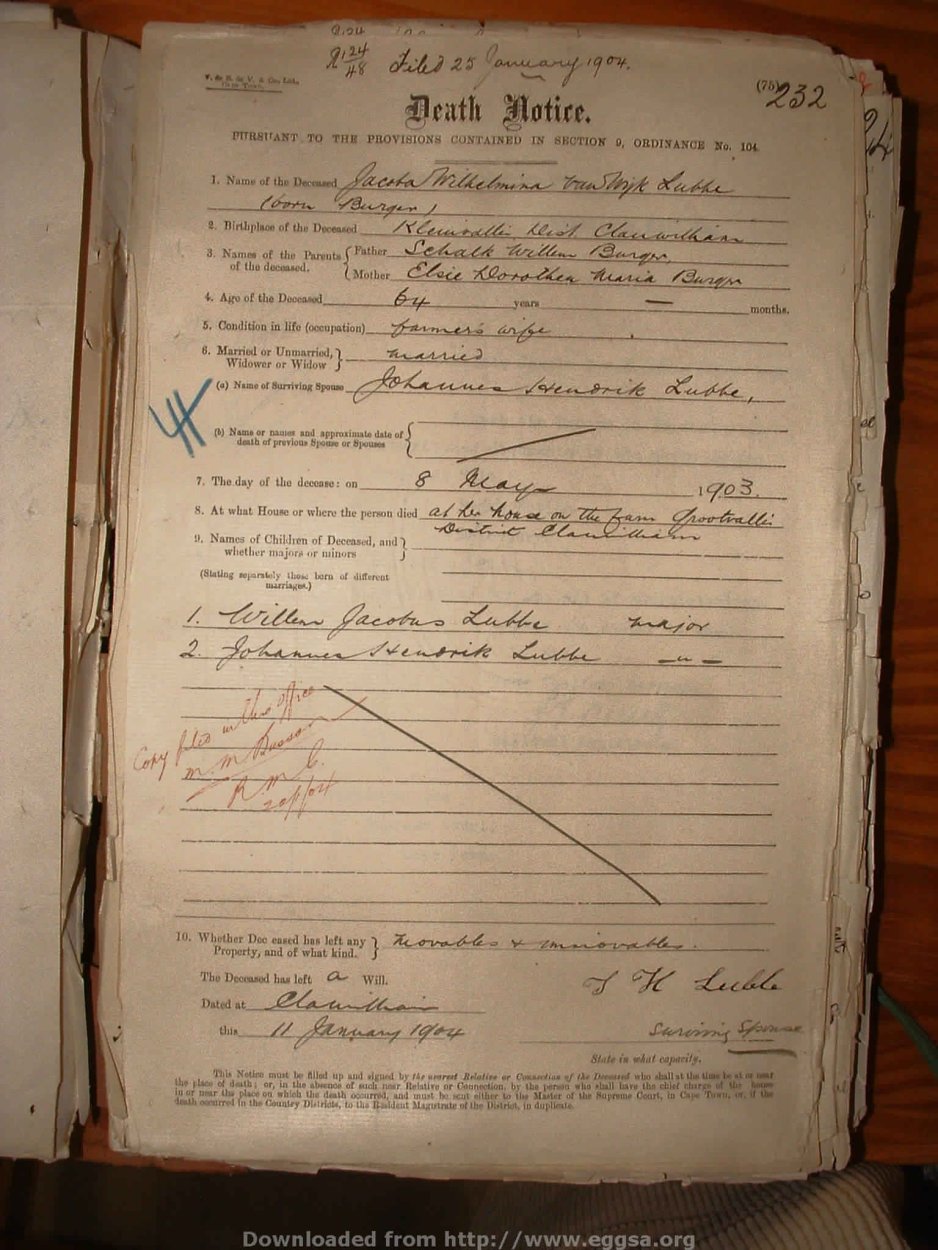 Filed 25 January 1904.
V. de R. de V. & Co., Ltd.,
Cape Town.
(75) 232
Death Notice.
PURSUANT TO THE PROVISIONS CONTAINED IN SECTION 9, ORDINANCE No. 104.
1. Name of the Deceased Jacoba Wilhelmina van Wijk Lubbe
(born Burger)
2. Birthplace of the Deceased Kleinvallei Dist. Clanwilliam
3. Names of the Parents of the deceased. Father Schalk Willem Burger,
Mother Elsie Dorothea Maria Burger
4. Age of the Deceased 64 years — months.
5. Condition in life (occupation) farmer's wife
6. Married or Unmarried, Widower or Widow married
(a) Name of Surviving Spouse Johannes Hendrik Lubbe,
(b) Name or names and approximate date of death of previous Spouse or Spouses
7. The day of the decease: on 8 May 1903.
8. At what House or where the person died at her house on the farm Grootvallei
District Clanwilliam
9. Names of Children of Deceased, and whether majors or minors
(Stating separately those born of different marriages.)
1. Willem Jacobus Lubbe major
2. Johannes Hendrik Lubbe — " —
Copy filed in this office
R. M. C.
10. Whether Deceased has left any Property, and of what kind. Movables & immovables.
The Deceased has left a Will.
J H Lubbe
Dated at Clanwilliam
this 11 January 1904
Surviving Spouse
State in what capacity.
This Notice must be filled up and signed by the nearest Relative or Connection of the Deceased who shall at the time be at or near
the place of death; or, in the absence of such near Relative or Connection, by the person who shall have the chief charge of the house
in or near the place on which the death occurred, and must be sent either to the Master of the Supreme Court, in Cape Town, or, if the
death occurred in the Country Districts, to the Resident Magistrate of the District, in duplicate.
Downloaded from http://www.eggsa.org